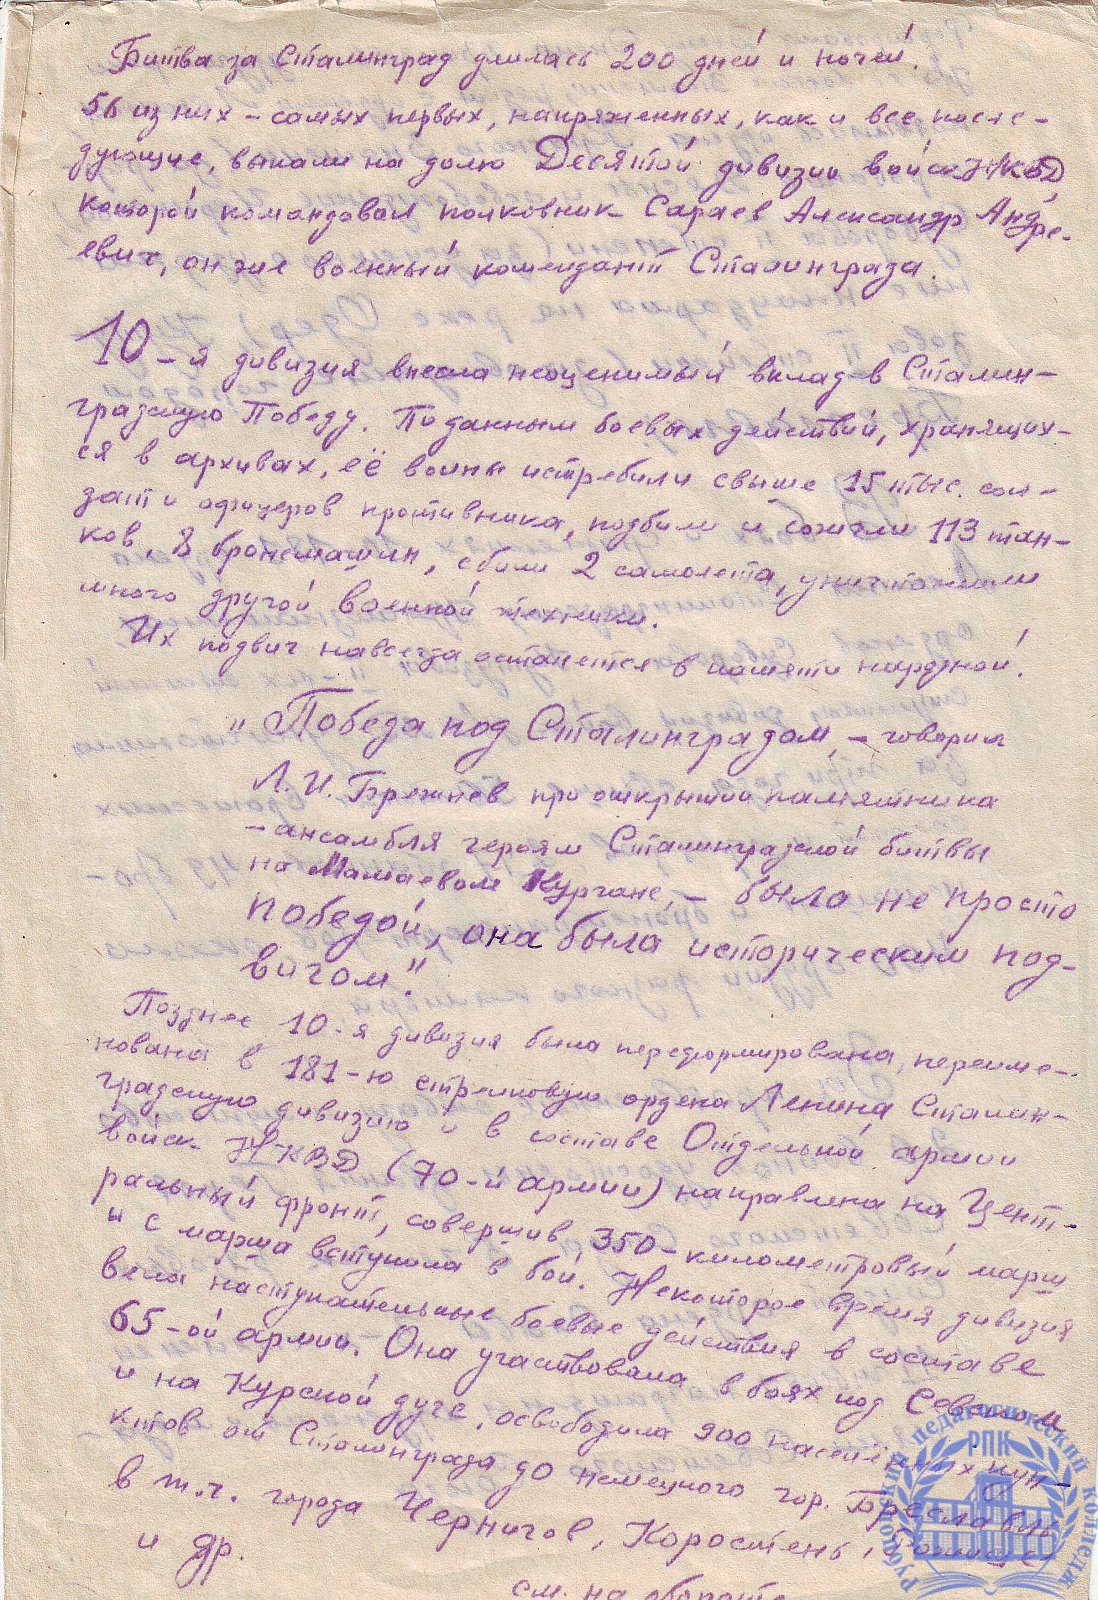 Битва за Сталинград длилась 200 дней и ночей!
56 из них – самых первых, напряженных, как и все после-
дующие, выпали на долю Десятой дивизии войск НКВД
которой командовал полковник Сараев Александр Андре-
евич, он же военный комендант Сталинграда.
10-я дивизия внесла неоценимый вклад в Сталин-
градскую Победу. По данным боевых действий, хранящих-
ся в архивах, её воины истребили свыше 15 тыс. сол-
дат и офицеров противника, подбили и сожгли 113 тан-
ков, 8 бронемашин, сбили 2 самолета, уничтожили
много другой военной техники.
Их подвиг навсегда останется в памяти народной!
"Победа под Сталинградом, – говорил
Л.И. Брежнев при открытии памятника
-ансамбля героям Сталинградской битвы
на Мамаевом Кургане, – была не просто
победой, она была историческим под-
вигом".
Позднее 10-я дивизия была переформирована, переиме-
нована в 181-ю стрелковую ордена Ленина Сталин-
градскую дивизию и в составе Отдельной армии
войск НКВД (70-й армии) направлена на Цент-
ральный фронт, совершив 350-километровый марш
и с марша вступила в бой. Некоторое время дивизия
вела наступательные боевые действия в составе
65-ой армии. Она участвовала в боях под Севском
и на Курской дуге, освободила 900 населённых пун-
ктов от Сталинграда до немецкого гор. Бреславль
в т.ч. города Чернигов, Коростень,
и др.
см. на обороте
Рубцовский педагогический колледж
РПК